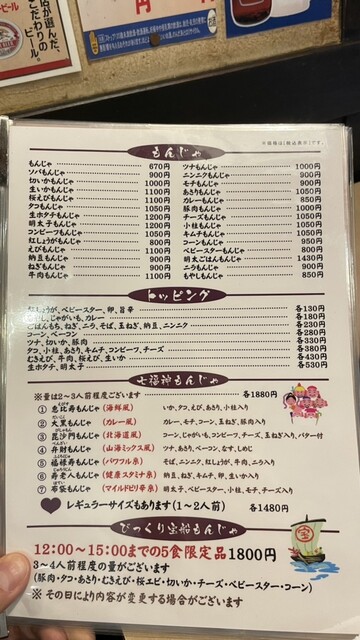 店が選んだ、
こだわりの
ビール。
円
※価格は「税込表示」です。
もんじゃ
もんじゃ 670円
ソバもんじゃ 900円
切いかもんじゃ 1000円
生いかもんじゃ 1100円
桜えびもんじゃ 1100円
タコもんじゃ 1050円
生ホタテもんじゃ 1200円
明太子もんじゃ 1200円
コンビーフもんじゃ 1050円
紅しょうがもんじゃ 800円
えびもんじゃ 1100円
納豆もんじゃ 900円
ねぎもんじゃ 900円
牛肉もんじゃ 1100円
ツナもんじゃ 1000円
ニンニクもんじゃ 900円
モチもんじゃ 900円
あさりもんじゃ 1050円
カレーもんじゃ 850円
豚肉もんじゃ 1000円
チーズもんじゃ 1050円
小柱もんじゃ 1050円
キムチもんじゃ 1050円
コーンもんじゃ 950円
ベビースターもんじゃ 800円
明太ごはんもんじゃ 1430円
ニラもんじゃ 900円
もやしもんじゃ 850円
トッピング
紅しょうが、ベビースター、卵、旨辛 各130円
もやし、じゃがいも、カレー 各180円
ごはんもち、ねぎ、ニラ、そば、玉ねぎ、納豆、ニンニク 各230円
コーン、ベーコン 各280円
ツナ、切いか、豚肉 各330円
タコ、小柱、あさり、キムチ、コンビーフ、チーズ 各380円
むきえび、牛肉、桜えび、生いか 各430円
生ホタテ、明太子 各530円
七福神もんじゃ
※量は2〜3人前程度ございます 各1880円
① 恵比寿もんじゃ (海鮮風) いか、タコ、えび、あさり、小柱入り
② 大黒もんじゃ (カレー風) カレー、モチ、コーン、玉ねぎ、豚肉入り
③ 毘沙門もんじゃ (北海道風) コーン、じゃがいも、コンビーフ、チーズ、玉ねぎ入り、バター付
④ 弁財もんじゃ (山海ミックス風) ツナ、あさり、ベーコン、なす、しめじ
⑤ 福禄寿もんじゃ (パワフル系) そば、ニンニク、紅しょうが、牛肉、ニラ入り
⑥ 寿老人もんじゃ (健康スタミナ系) 納豆、ねぎ、キムチ、卵、生いか入り
⑦ 布袋もんじゃ (マイルドピリ辛系) 明太子、ベビースター、小柱、モチ、チーズ入り
レギュラーサイズもあります(1〜2人前) 各1480円
びっくり宝船もんじゃ
12:00〜15:00までの5食限定品1800円
3〜4人前程度の量がございます
(豚肉・タコ・あさり・むきえび・桜エビ・切いか・チーズ・ベビースター・コーン)
※ その日により内容が変更する場合がございます
宝